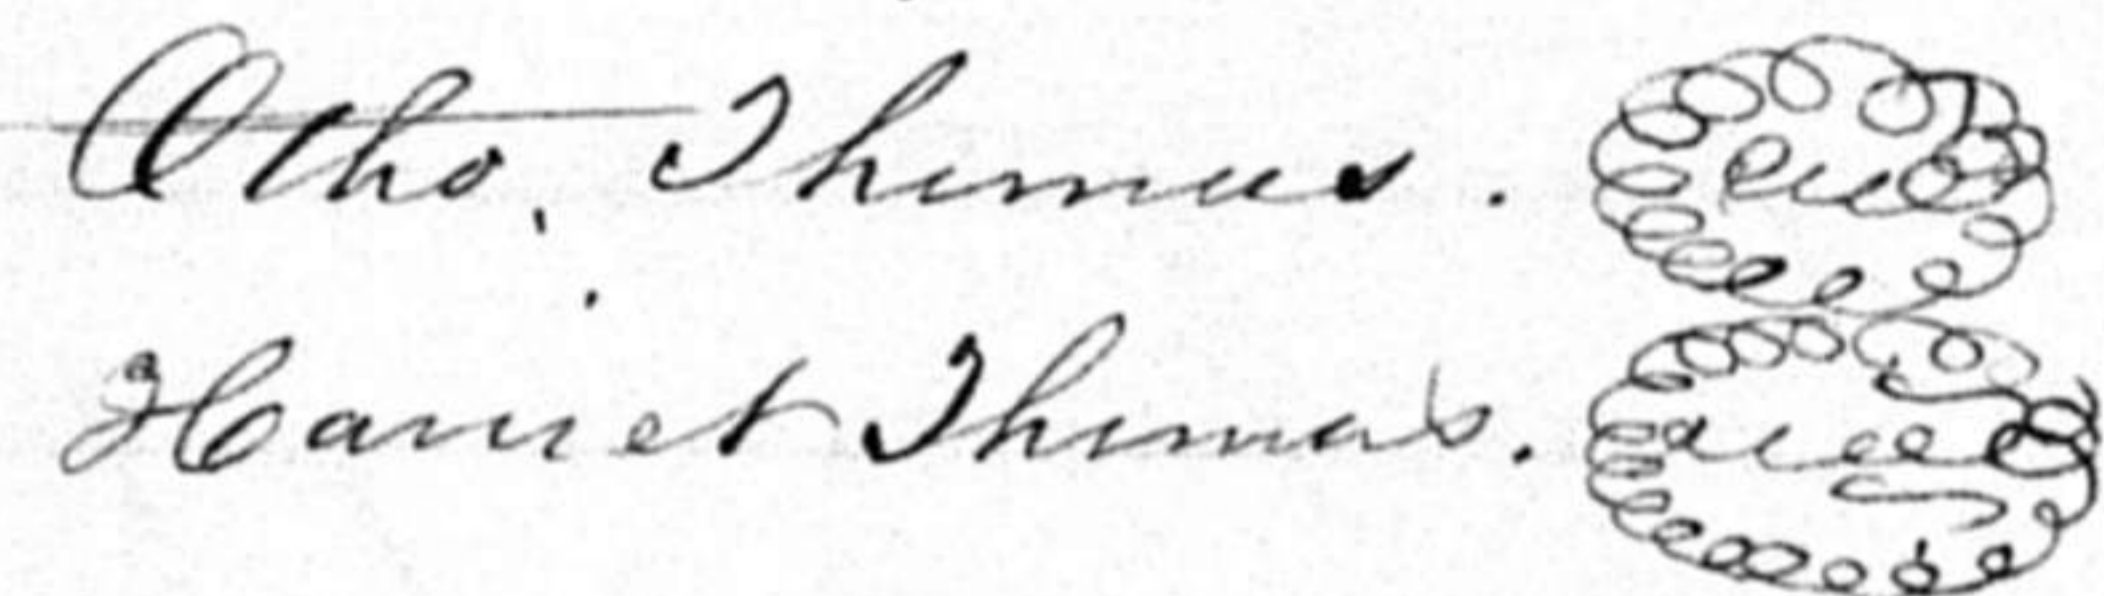 Otho, Thomas. Seal
Harriet Thomas. Seal